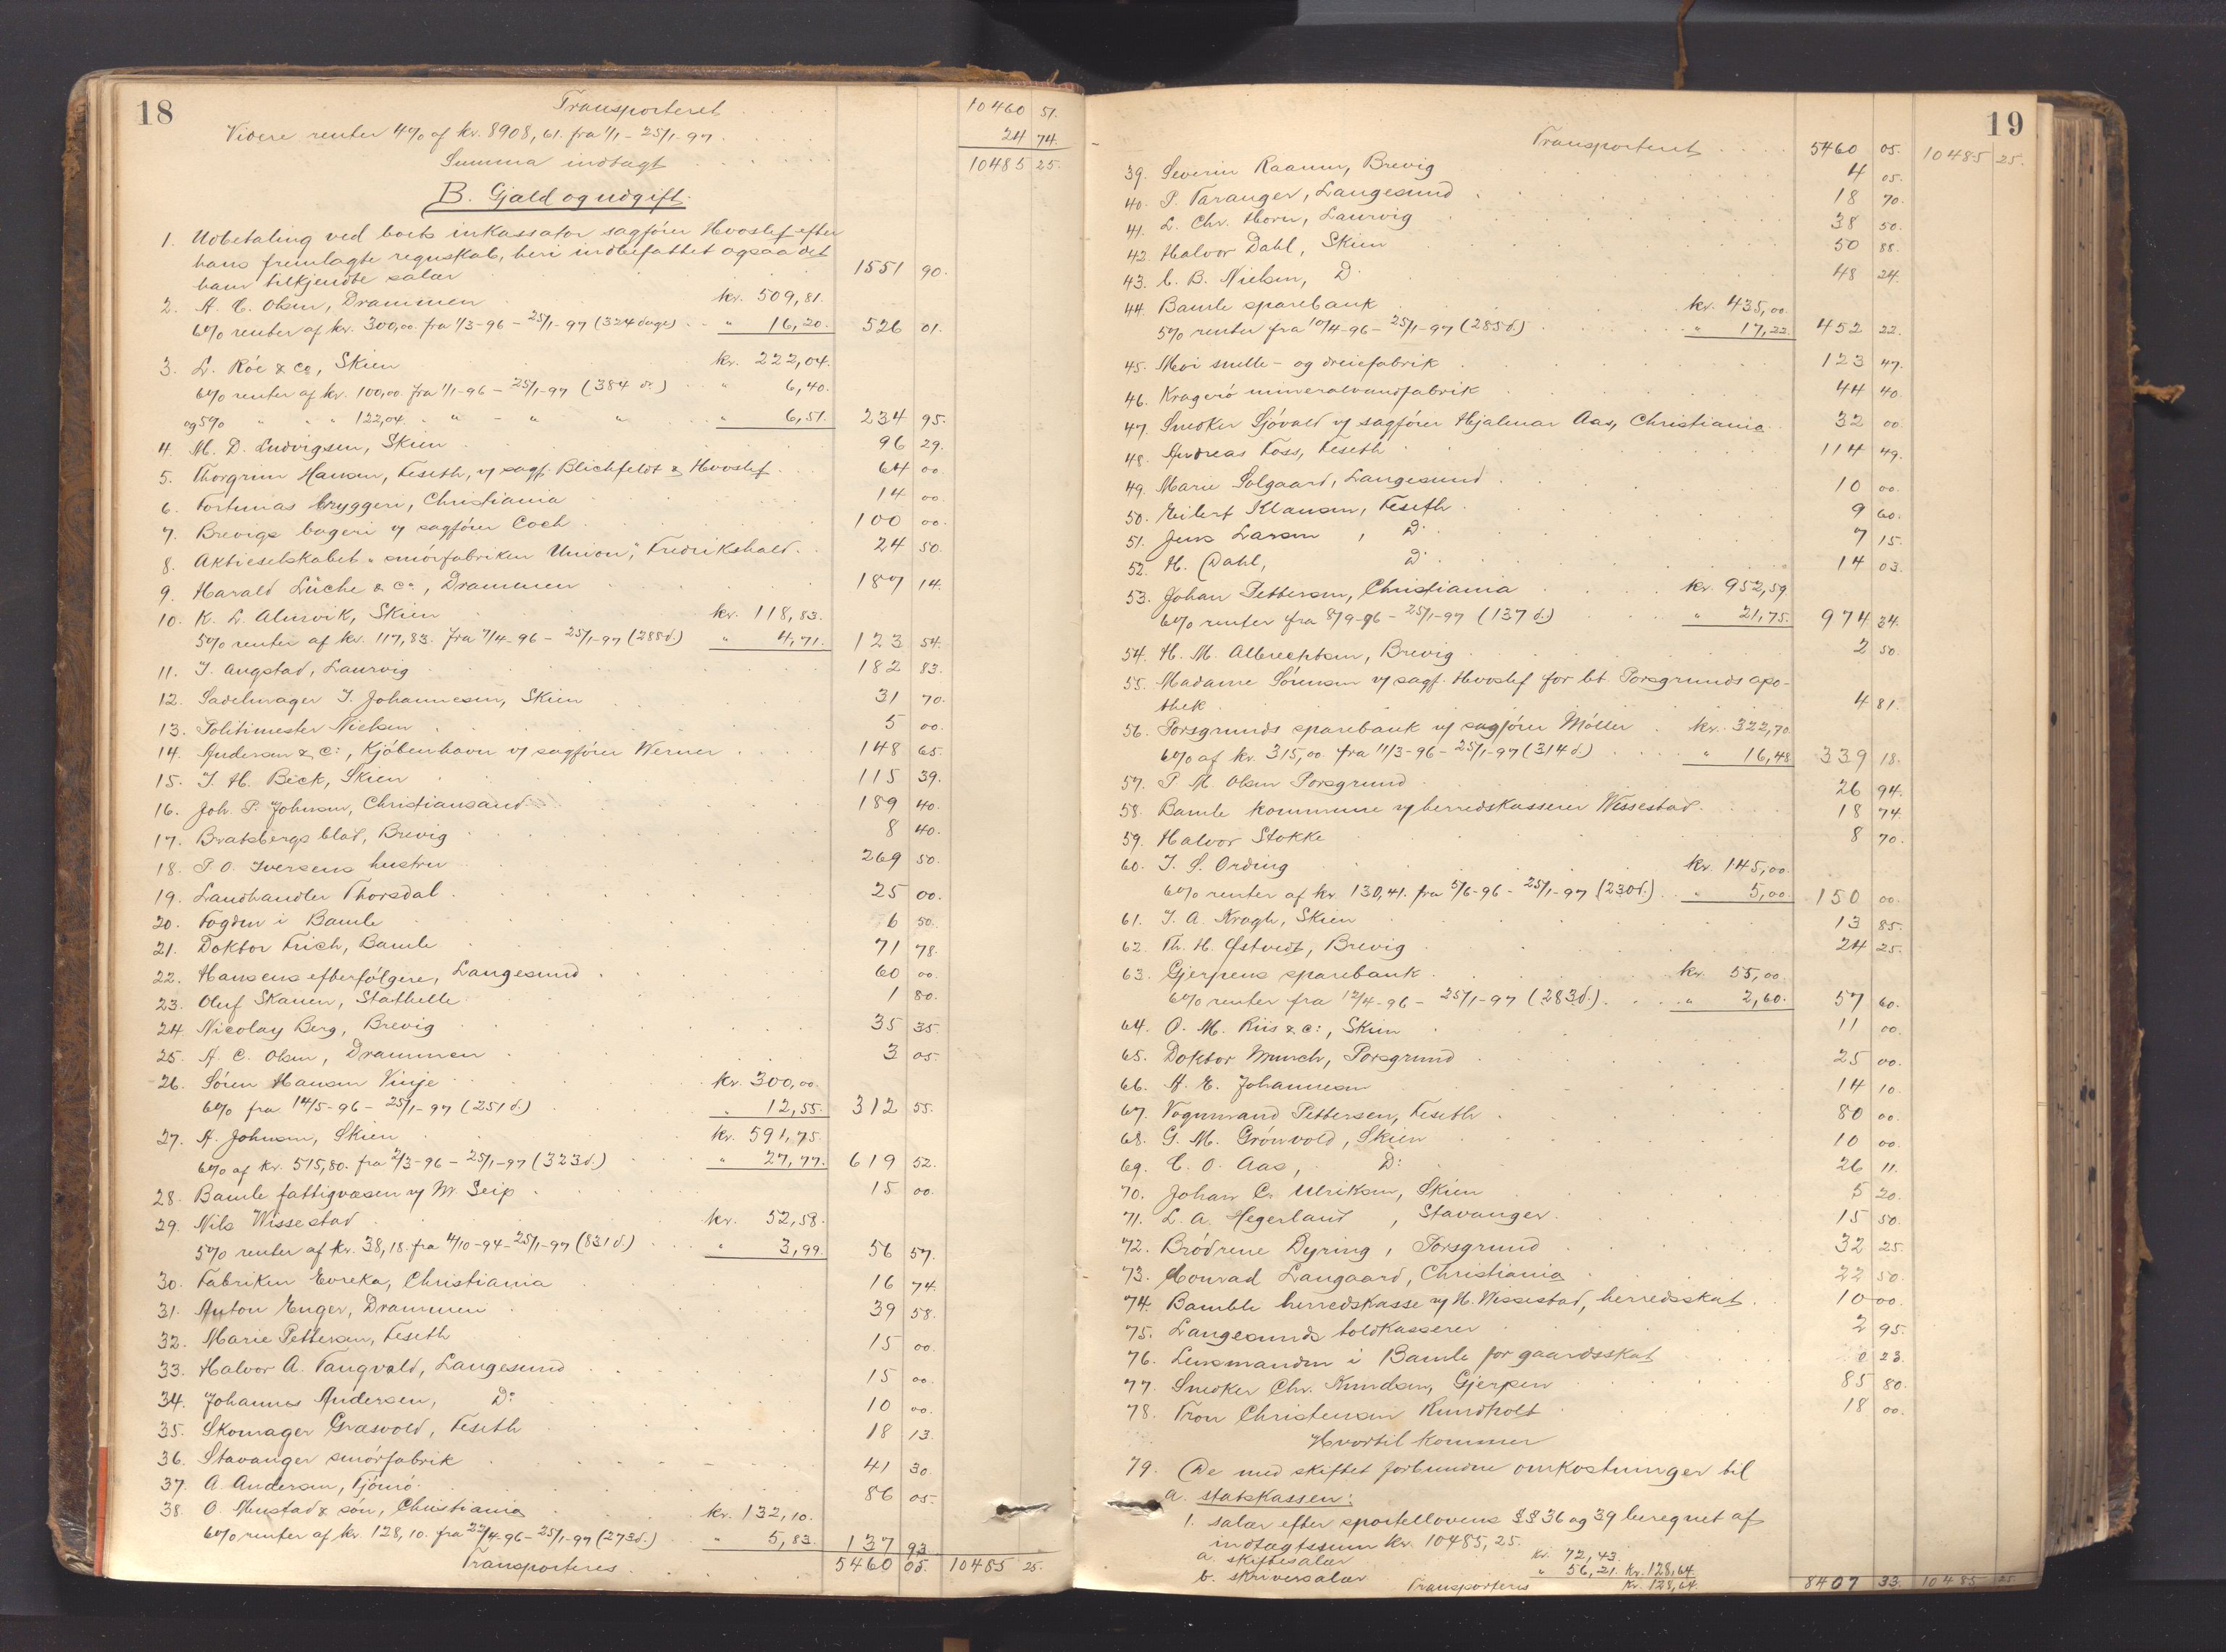 18
Transporteret 10460 51.
Videre renter 4% af kr. 8908,61. fra 1/1 - 25/1-97 24 74.
Summa indtægt 10485 25.
B. Gjæld og udgift.
1. Udbetaling ved boets inkassator sagfører Hvoslef efter
hans fremlagte regnskab, heri indbefattet ogsaa det
ham tilkjendte salær 1551 90.
2. A. C. Olsen, Drammen kr. 509,81.
6% renter af kr. 300,00. fra 1/3-96 - 25/1-97 (324 dage) " 16,20. 526 01.
3. L. Röe & Co, Skien kr. 222,04.
6% renter af kr. 100,00. fra 1/1-96 - 25/1-97 (384 d.) " 6,40.
og 5% " " " 122,04. " " - " " " 6,51. 234 95.
4. M. D. Ludvigsen, Skien 96 29.
5. Thorgrim Hansen, Feseth, v/ sagf. Blichfeldt & Hvoslef 64 00.
6. Fortunas bryggeri, Christiania 14 00.
7. Brevigs bageri v/ sagfører Coch 100 00.
8. Aktieselskabet "smörfabriken Union", Fredrikshald 24 50.
9. Harald Lüche & Co., Drammen 187 14.
10. K. L. Alnsvik, Skien kr. 118,83.
5% renter af kr. 117,83. fra 7/4-96 - 25/1-97 (288 d.) " 4,71. 123 54.
11. I. Augstad, Laurvig 182 83.
12. Sadelmager I. Johannesen, Skien 31 70.
13. Politimester Nielsen 5 00.
14. Andersen & C:, Kjöbenhavn v/ sagfører Werner 148 65.
15. I. H. Beck, Skien 115 39.
16. Joh. P. Johnsen, Christiansand 189 40.
17. Bratsbergs blad, Brevig 8 40.
18. P. O. Iversens hustru 269 50.
19. Landhandler Thorsdal 25 00.
20. Fogden i Bamle 6 50.
21. Doktor Frich, Bamle 71 78.
22. Hansens efterfölgere, Langesund 60 00.
23. Oluf Skauen, Stathelle 1 80.
24. Nicolay Berg, Brevig 35 35.
25. A. C. Olsen, Drammen 3 05.
26. Sören Hansen Vinje kr. 300,00.
6% fra 14/5-96 - 25/1-97 (251 d.) " 12,55. 312 55.
27. A. Johnsen, Skien kr. 591,75.
6% af kr. 515,80. fra 2/3-96 - 25/1-97 (323 d.) " 27,77. 619 52.
28. Bamle fattigvæsen v/ M. Seip 15 00.
29. Nils Wissestad kr. 52,58.
5% renter af kr. 38,18. fra 4/10-94 - 25/1-97 (831 d.) " 3,99. 56 57.
30. Fabriken Evreka, Christiania 16 74.
31. Anton Enger, Drammen 39 58.
32. Marie Pettersen, Feseth 15 00.
33. Halvor A. Tangvald, Langesund 15 00.
34. Johannes Andersen, D: 10 00.
35. Skomager Græsvold, Feseth 18 13.
36. Stavanger smörfabrik 41 30.
37. A. Andersen, Tjömö 86 05.
38. O. Mustad & sön, Christiania kr. 132,10.
6% renter af kr. 128,10. fra 22/4-96 - 25/1-97 (273 d.) " 5,83. 137 93.
Transporteres 5460 05. 10485 25.
19
Transporteret 5460 05. 10485 25.
39. Severin Raanum, Brevig 4 05.
40. P. Taranger, Langesund 18 70.
41. L. Chr. Horn, Laurvig 38 50.
42. Halvor Dahl, Skien 50 88.
43. C. B. Nielsen, D: 48 24.
44. Bamle sparebank kr. 435,00.
5% renter fra 10/4-96 - 25/1-97 (285 d.) " 17,22. 452 22.
45. Moi snelle- og dreiefabrik 123 47.
46. Kragerö mineralvandfabrik 44 40.
47. Snedker Sjövald v/ sagfører Hjalmar Aas, Christiania 32 00.
48. Andreas Foss, Feseth 114 49.
49. Marie Solgaard, Langesund 10 00.
50. Eilert Klausen, Feseth 9 60.
51. Jens Larsen, D: 7 15.
52. H. Dahl, D: 14 03.
53. Johan Pettersen, Christiania kr. 952,59
6% renter fra 8/9-96 - 25/1-97 (137 d.) " 21,75. 974 34.
54. H. M. Albrechtsen, Brevig 2 50.
55. Madame Sörensen v/ sagf. Hvoslef for bet. Porsgrunds apo-
thek 4 81.
56. Porsgrunds sparebank v/ sagfører Möller kr. 322,70.
6% af kr. 315,00. fra 11/3-96 - 25/1-97 (314 d.) " 16,48 339 18.
57. P. M. Olsen Porsgrund 26 94.
58. Bamle kommune v/ herredskasserer Wissestad 18 74.
59. Halvor Stokke 8 70.
60. I. S. Ording kr. 145,00.
6% renter af kr. 130,41. fra 5/6-96 - 25/1-97 (230 d.) " 5,00. 150 00.
61. I. A. Kragh, Skien 13 85.
62. Th. H. Østvedt, Brevig 24 25.
63. Gjerpens sparebank kr. 55,00.
6% renter fra 12/4-96 - 25/1-97 (283 d.) " 2,60. 57 60.
64. O. M. Riis & C:, Skien 11 00.
65. Doktor Munch, Porsgrund 25 00.
66. A. E. Johannesen 14 10.
67. Vognmand Pettersen, Feseth 80 00.
68. G. M. Grönvold, Skien 10 00.
69. C. O. Aas, D: 26 11.
70. Johan C. Ulriksen, Skien 5 20.
71. L. A. Hegerland, Stavanger 15 50.
72. Brödrene Dyring, Porsgrund 32 25.
73. Conrad Langaard, Christiania 22 50.
74. Bamble herredskasse v/ N. Wissestad, herredsskat 10 00.
75. Langesunds toldkasserer 2 95.
76. Lensmanden i Bamle for gaardsskat 0 23.
77. Snedker Chr. Knudsen, Gjerpen 85 80.
78. Tron Christensen Rundholt 18 00.
Hvortil kommer
79. De med skiftet forbundne omkostninger til
a. statskassen:
1. salær efter sportellovens §§ 36 og 39 beregnet af
indtægtssum kr. 10485,25.
a. skiftesalær kr. 72,43.
b. skriversalær " 56,21. kr. 128,64.
Transporteres kr. 128,64. 8407 33. 10485 25.